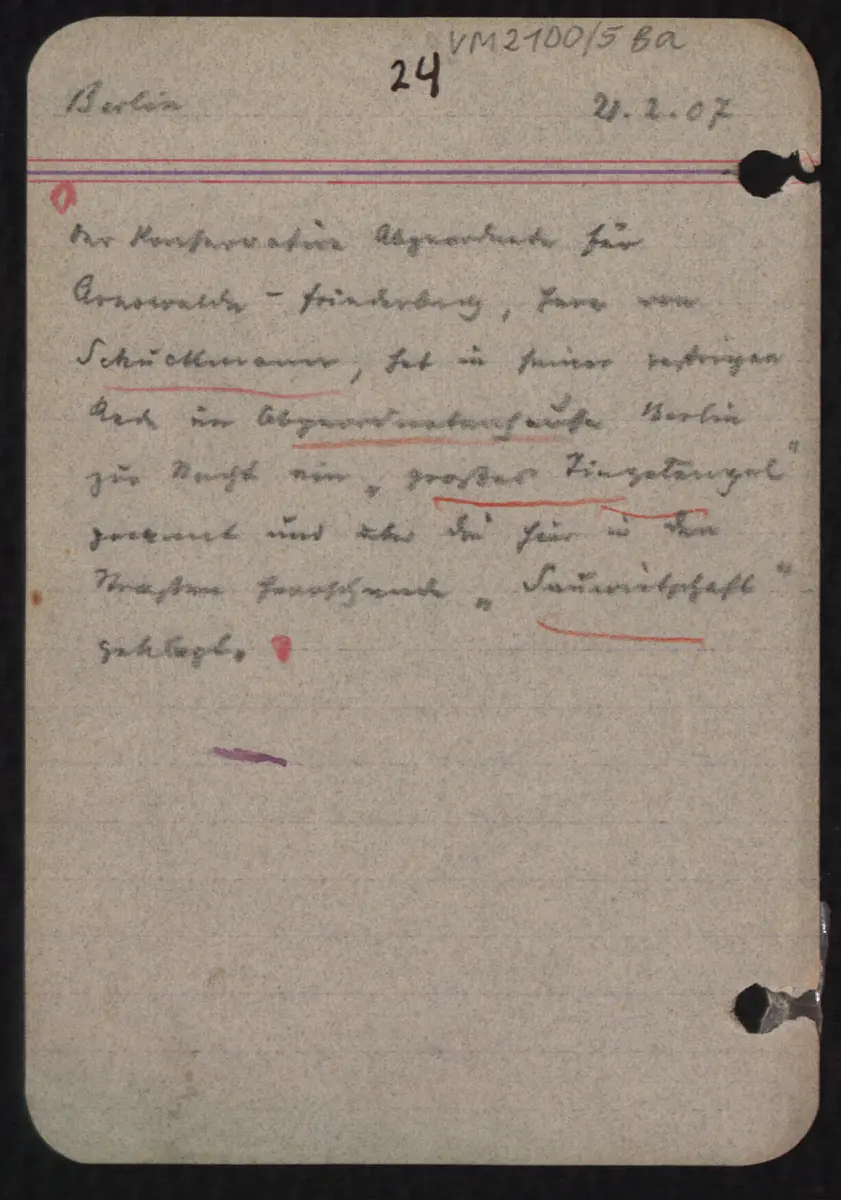 VM 2100/5 Ba
24
Berlin 21.2.07
Der konservative Abgeordnete für
Arnswalde - Friedeberg, Herr von
Schuckmann, hat in seiner gestrigen
Rede im Abgeordnetenhause Berlin
zur Nacht ein „großes Tingeltangel"
genannt und über die hier in den
Straßen herrschende „Sauwirtschaft"
geklagt.